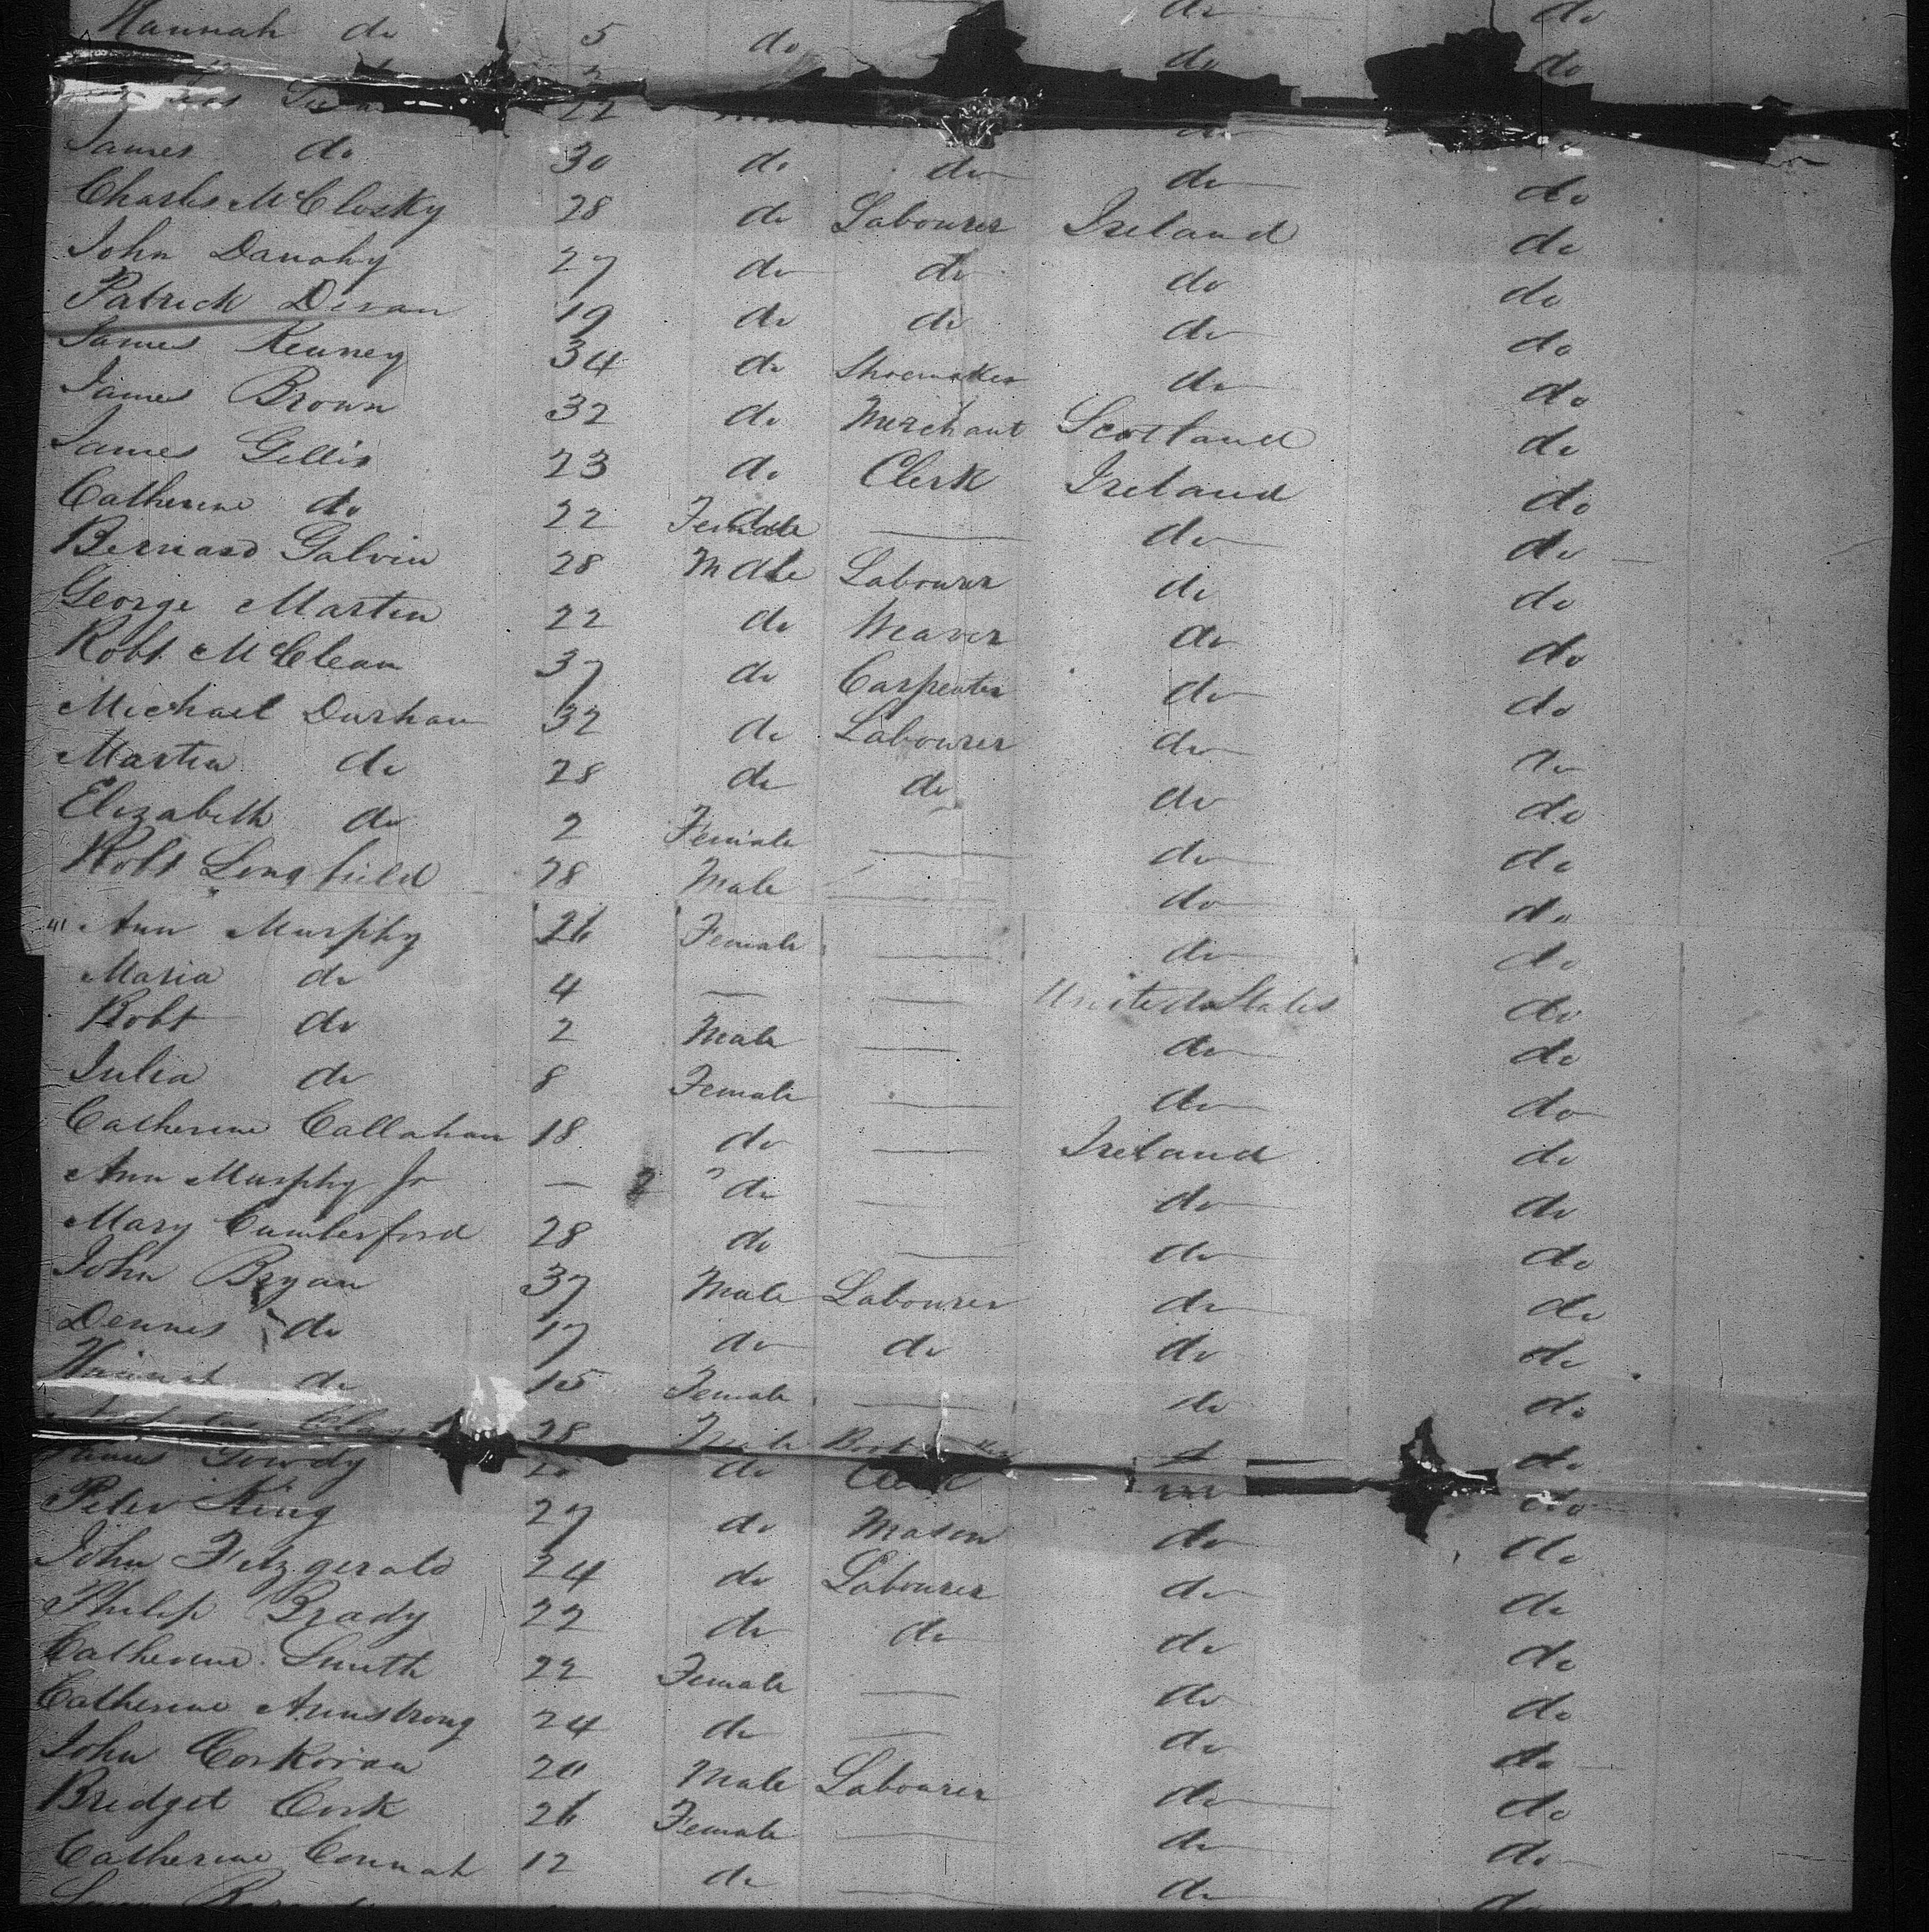 Hannah do 5 do do do
22
James do 30 do do do do
Charles McClosky 28 do Labourer Ireland do
John Danahy 27 do do do do
Patrick Devan 19 do do do do
James Kenney 34 do Shoemaker do do
James Brown 32 do Merchant Scotland do
James Gillis 23 do Clerk Ireland do
Catherine do 22 Female — do do
Bernard Galvin 28 Male Labourer do do
George Martin 22 do Weaver do do
Robt McClean 37 do Carpenter do do
Michael Durhan 32 do Labourer do do
Martin do 28 do do do do
Elizabeth do 2 Female — do do
Robt Longfield 28 Male — do do
Ann Murphy 26 Female — do do
Maria do 4 — — United States do
Robt do 2 Male — do do
Julia do 8 Female — do do
Catherine Callahan 18 do — Ireland do
Ann Murphy Jr — 2 do — do do
Mary Cumberford 28 do — do do
John Bryan 37 Male Labourer do do
Dennis do 17 do do do do
Hannah do 15 Female — do do
28 Male do
James Gowdy do Clerk do do
Peter King 27 do Mason do do
John Fitzgerald 24 do Labourer do do
Philip Brady 22 do do do do
Catherine Smith 22 Female — do do
Catherine Armstrong 24 do — do do
John Corkoran 20 Male Labourer do do
Bridget Cork 26 Female — do do
Catherine Connah 12 do — do do
do